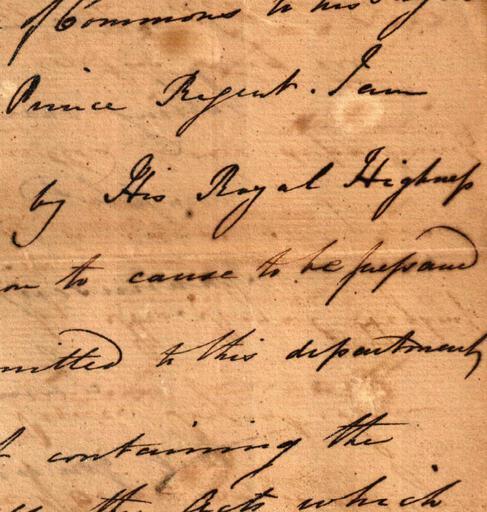 of Commons to his
Prince Regent. I am
by His Royal Highness
to cause to be prepared
mitted to this department
containing the
the Acts which